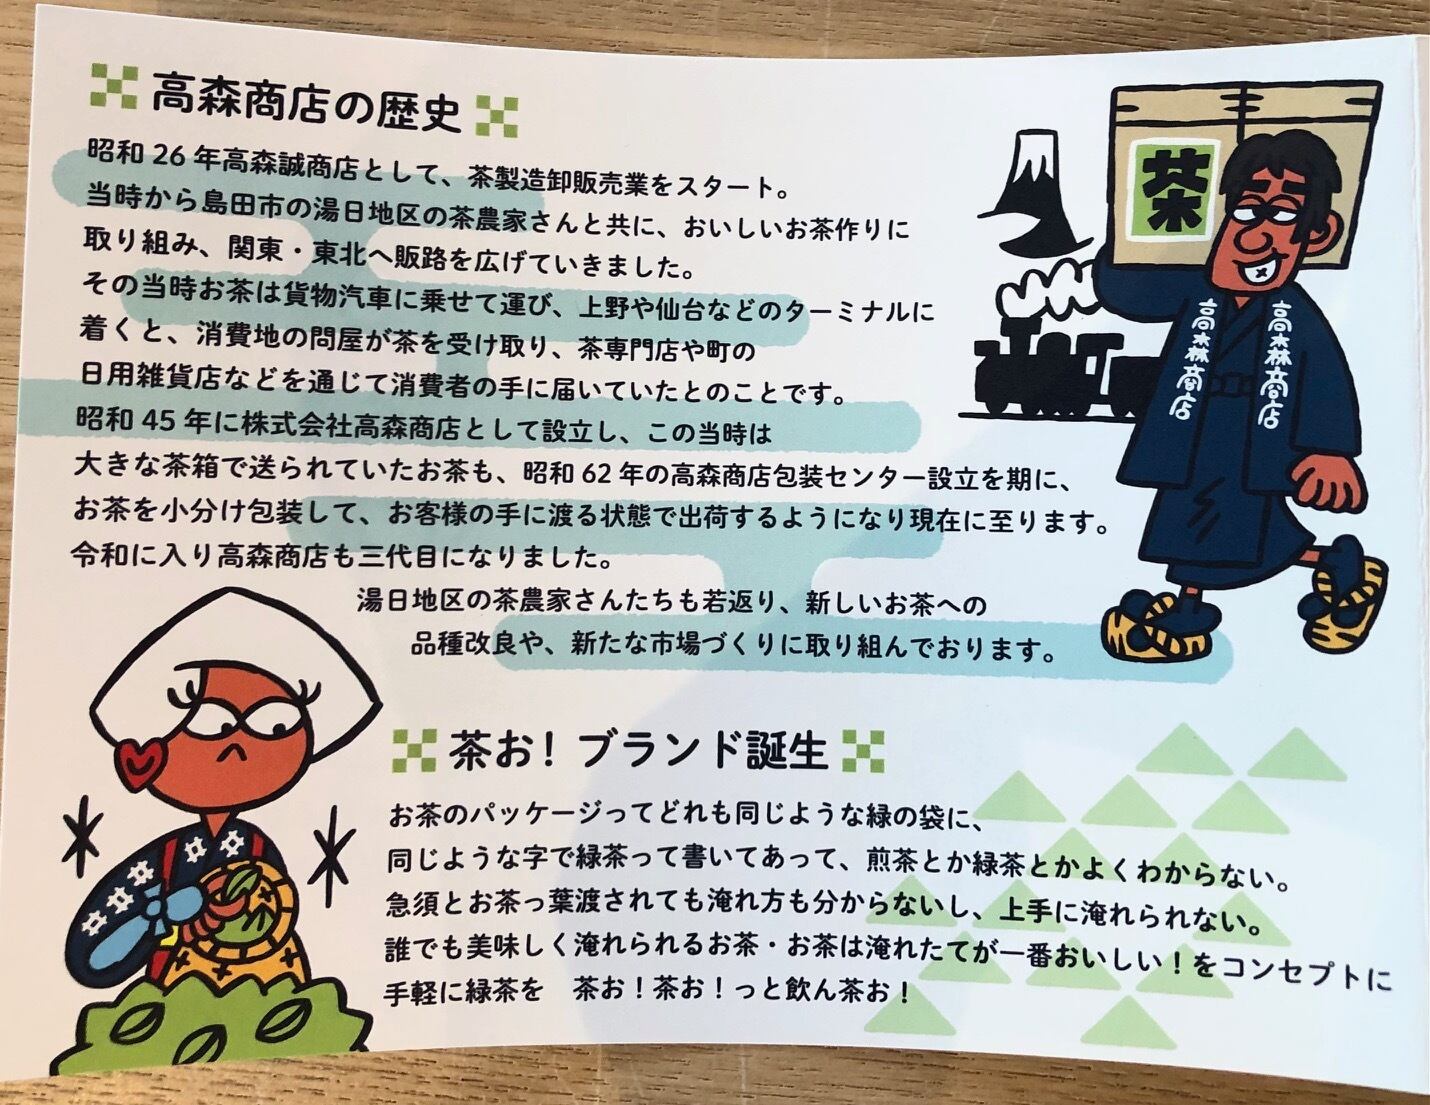 高森商店の歴史
昭和26年高森誠商店として、茶製造卸販売業をスタート。
当時から島田市の湯日地区の茶農家さんと共に、おいしいお茶作りに
取り組み、関東・東北へ販路を広げていきました。
その当時お茶は貨物汽車に乗せて運び、上野や仙台などのターミナルに
着くと、消費地の問屋が茶を受け取り、茶専門店や町の
日用雑貨店などを通じて消費者の手に届いていたとのことです。
昭和45年に株式会社高森商店として設立し、この当時は
大きな茶箱で送られていたお茶も、昭和62年の高森商店包装センター設立を期に、
お茶を小分け包装して、お客様の手に渡る状態で出荷するようになり現在に至ります。
令和に入り高森商店も三代目になりました。
湯日地区の茶農家さんたちも若返り、新しいお茶への
品種改良や、新たな市場づくりに取り組んでおります。
茶
高森商店
高森商店
茶お！ブランド誕生
お茶のパッケージってどれも同じような緑の袋に、
同じような字で緑茶って書いてあって、煎茶とか緑茶とかよくわからない。
急須とお茶っ葉渡されても淹れ方も分からないし、上手に淹れられない。
誰でも美味しく淹れられるお茶・お茶は淹れたてが一番おいしい！をコンセプトに
手軽に緑茶を　茶お！茶お！っと飲ん茶お！